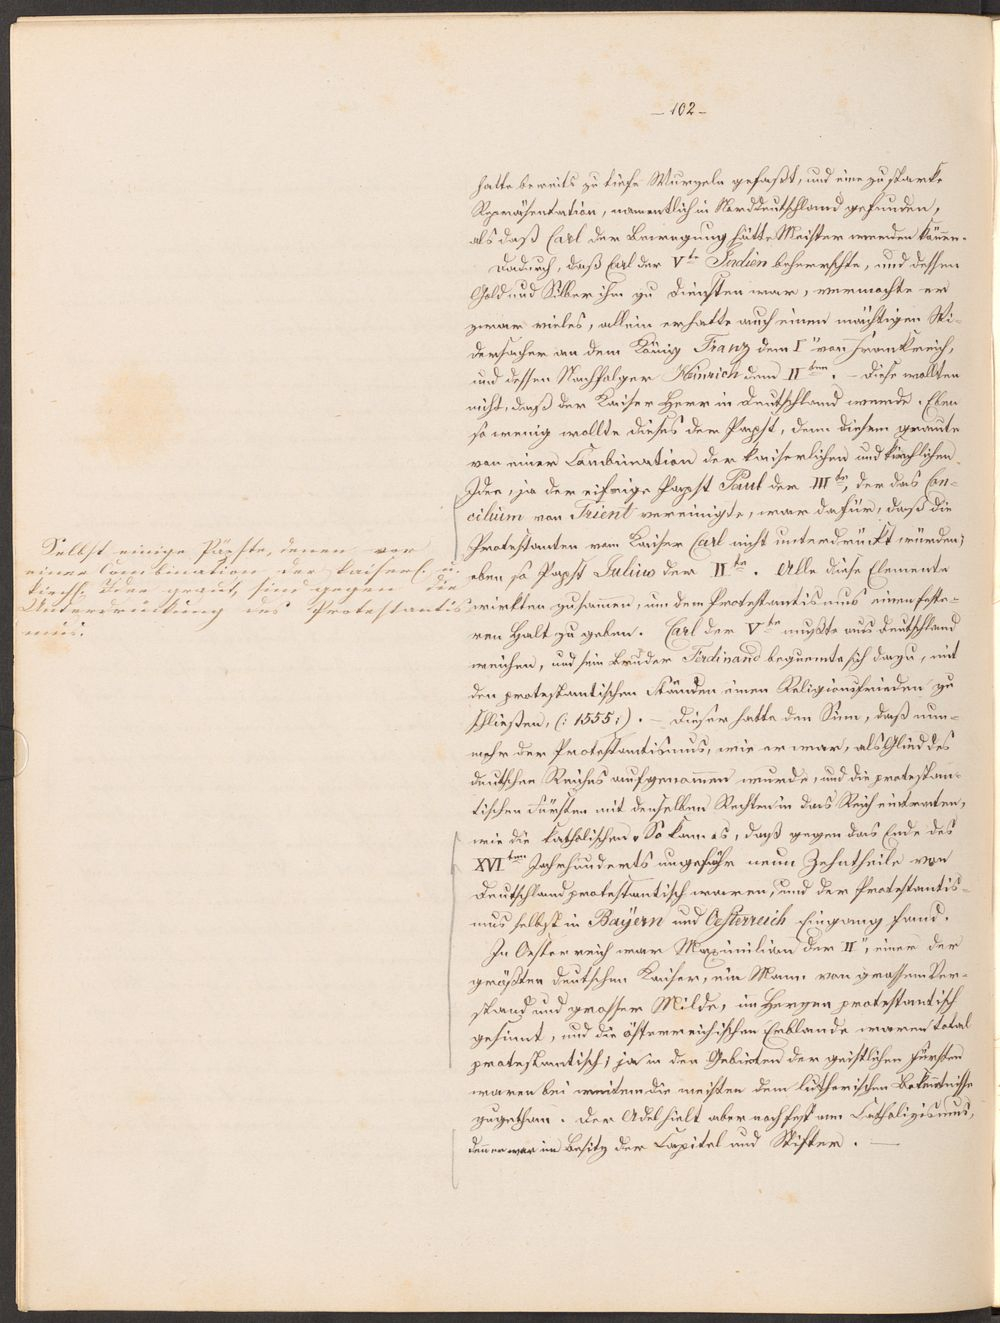 – 102 –
hatte bereits zu tiefe Wurzeln gefaßt, und eine zu starke
Repräsentation, namentlich in Norddeutschland gefunden,
als daß Carl der Bewegung hätte Meister werden können.
Dadurch, daß Carl der Vte Indien beherrschte, und dessen
Gold und Silber ihm zu Diensten war, vermochte er
zwar vieles, allein er hatte auch einen mächtigen Wi-
dersacher an dem König Franz dem I" von Frankreich,
und dessen Nachfolger Heinrich dem IIten. – Diese wollten
nicht, daß der Kaiser Herr in Deutschland werde. Eben
so wenig wollte dieses der Papst, denn diesem graute
von einer Combination der kaiserlichen und kirchlichen
Idee, ja der eifrige Papst Paul der IIIte, der das Con-
cilium von Trient vereinigte, war dafür, daß die
Protestanten vom Kaiser Carl nicht unterdrückt würden;
eben so Papst Julius der IIte. Alle diese Elemente
wirkten zusammen, um dem Protestantismus einen feste-
ren Halt zu geben. Carl der Vte mußte aus Deutschland
weichen, und sein Bruder Ferdinand bequemte sich dazu, mit
den protestantischen Ständen einen Religionsfrieden zu
schließen, (: 1555 :). – Dieser hatte den Sinn, daß nun-
mehr der Protestantismus, wie er war, als Glied des
deutschen Reiches aufgenommen wurde, und die protestan-
tischen Fürsten mit denselben Rechten in das Reich eintraten,
wie die katholischen. So kam es, daß gegen das Ende des
XVIten Jahrhunderts ungefähr neun Zehntheile von
Deutschland protestantisch waren, und der Protestantis-
mus selbst in Bayern und Oesterreich Eingang fand.
In Oesterreich war Maximilian der II", einer der
größten deutschen Kaiser, ein Mann von grossem Ver-
stand und grosser Milde, im Herzen protestantisch
gesinnt, und die österreichischen Erblande waren total
protestantisch; ja in den Gebieten der geistlichen Fürsten
waren bei weitem die meisten dem lutherischen Bekenntnisse
zugethan. Der Adel hielt aber noch fest am Catholizismus,
denn er war im Besitz der Capitel und Stifter. —
Selbst einige Päpste, denen vor
einer Combination der kaiserl. u.
kirchl. Idee graut, sind gegen die
Unterdrückung des Protestantis
mus.